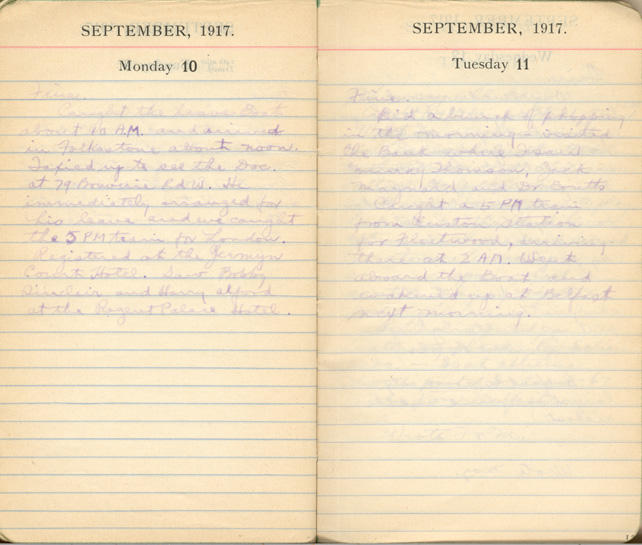 SEPTEMBER, 1917.
Monday 10
Fine.
Caught the leave Boat
about 10 A.M. and arrived
in Folkestone about noon.
Taxied up to see the Doc.
at 79 Bouverie Rd W. He
immediately arranged for
his leave and we caught
the 5 PM train for London.
Registered at the Jermyn
Court Hotel. Saw Bobby
Sinclair and Harry Alford
at the Regent Palace Hotel.
SEPTEMBER, 1917.
Tuesday 11
Fine.
Did a bunch of shopping
in the morning - visited
the Bank where I saw
Murray Thomson, Jack
and Dr Coutts
Caught a 5 PM train
from Euston Station
for Fleetwood, arriving
there at 2 AM. Went
aboard the Boat and
wakened up at Belfast
next morning.